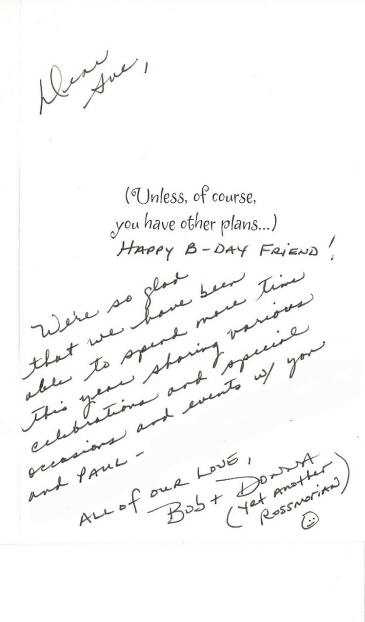 Dear
Sue,
(Unless, of course,
you have other plans...)
HAPPY B-DAY FRIEND!
We're so glad
that we have been
able to spend more time
this year sharing various
celebrations and special
occasions and events w/ you
and PAUL -
ALL of OUR LOVE,
Bob + DONNA
(Yet Another
Rossmorian)